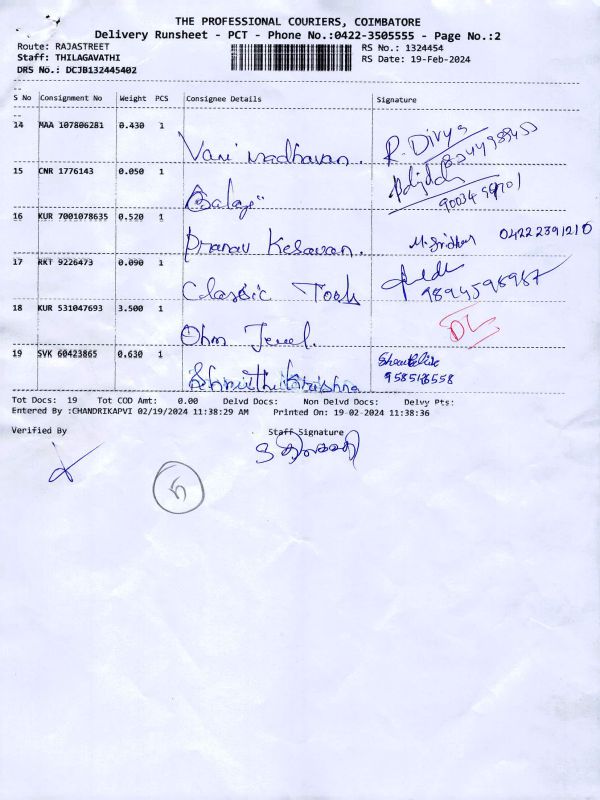 THE PROFESSIONAL COURIERS, COIMBATORE
Delivery Runsheet - PCT - Phone No.:0422-3505555 - Page No.:2
Route: RAJASTREET
RS No.: 1324454
Staff: THILAGAVATHI
RS Date: 19-Feb-2024
DRS No.: DCJB132445402
S No Consignment No Weight PCS Consignee Details Signature
14 MAA 107806281 0.430 1
Vani madhavan. R. Divya
15 CNR 1776143 0.050 1
Balaji
16 KUR 7001078635 0.520 1
Pranav Kesavan. M. Sridhar 04222391210
17 RKT 9226473 0.090 1
Classic Tools 9894598987
18 KUR 531047693 3.500 1
Ohm Jewel. DL
19 SVK 60423865 0.630 1
Tot Docs: 19 Tot COD Amt: 0.00 Delvd Docs: Non Delvd Docs: Delvy Pts:
Entered By :CHANDRIKAPVI 02/19/2024 11:38:29 AM Printed On: 19-02-2024 11:38:36
Verified By Staff Signature